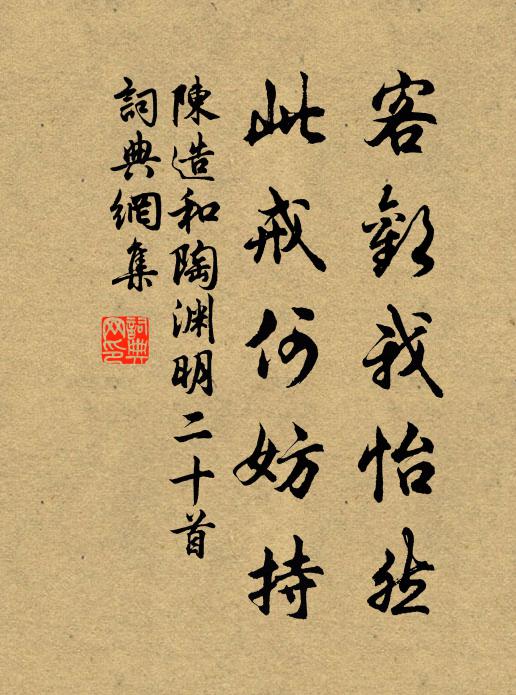 客歡我怡然
此戒何妨持
陳造和陶淵明二十首
詞典網集
詞典网印